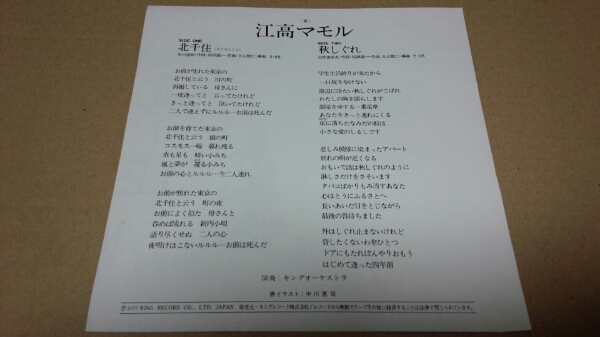 (歌)
江高マモル
SIDE ONE
北千住
お前が生れた東京の
北千住と云う 川の町
再婚している 母さんに
一度逢ってと 云ってたけれど
きっと逢ってと 泣いてたけれど
二人で逢えずにルルル…お前は死んだ
お前を育てた東京の
北千住と云う 橋の町
コスモス一輪 暮れ残る
水も星も 暗い小みち
風と夢が 還る小みち
お前の心とルルル…今二人連れ
お前が焦れた東京の
北千住と云う 町の夜
お前によく似た 母さんと
呑めば流れる 新内小唄
語り尽くせぬ 二人の心
夜明けはこないルルル…お前は死んだ
SIDE TWO
秋しぐれ
学生生活終りが来たから
一日旅をなげない
窓辺に冷たい秋しぐれがこぼれ
わたしの胸を濡らします
部屋をゆする一番電車
あなたをきっと連れにくる
頬に落ちたなみだの粒は
小さな愛のしるしです
悲しみ模様に染まったアパート
別れの朝が近くなる
おもいで話は秋しぐれのように
淋しさだけをさそいます
タバコばかりもみ消すあなた
心はとうにふるさとへ
長いあいだ目をとじながら
最後の答待ちました
外はしぐれ止まないけれど
貸したくないわ傘ひとつ
ドアにもたれぼんやりおもう
はじめて逢った四年前
演奏：キングオーケストラ
表イラスト：中川恵司
Ⓟ1977 KING RECORD CO., LTD. JAPAN 発売元・キングレコード株式会社／レコードから無断でテープその他に録音することは法律で禁じられています。